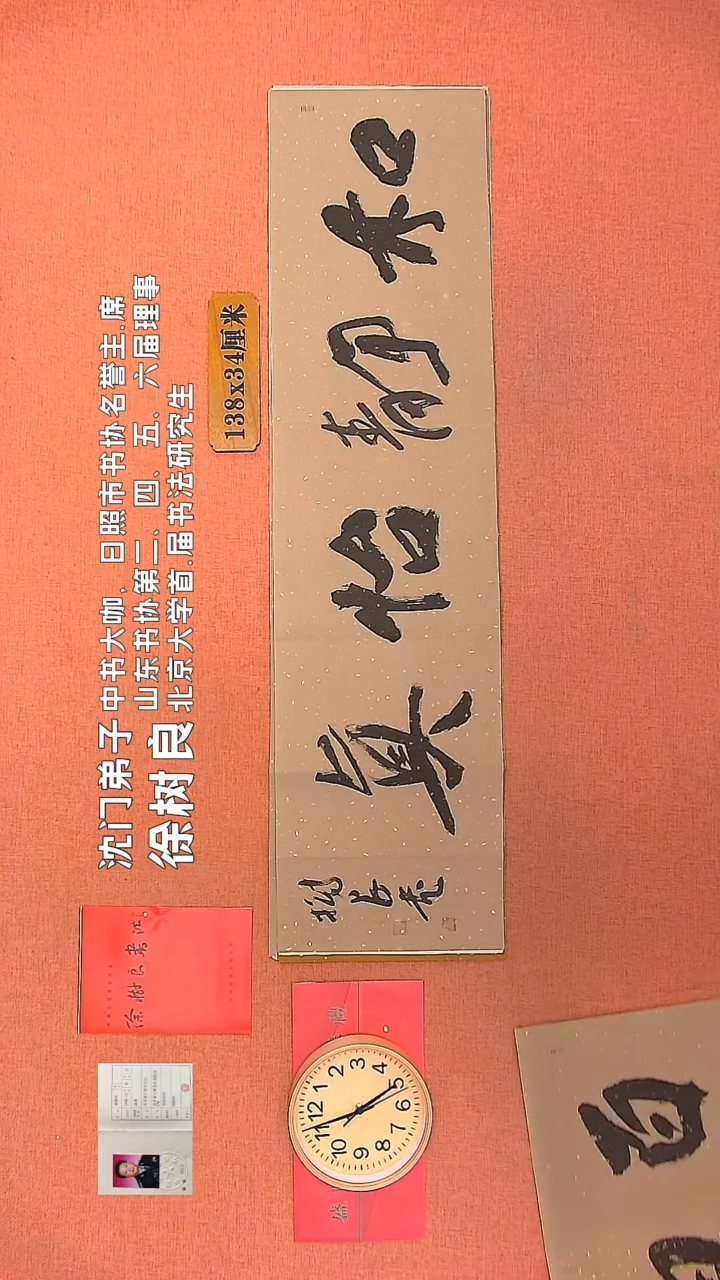 沈门弟子
徐树良
中书大咖，日照市书协名誉主.席
山东书协第二、四、五、六届理事
北京大学首.届书法研究生
138x34厘米
和静怡真
徐樹良書法
12
1
2
3
4
5
6
7
8
9
10
11